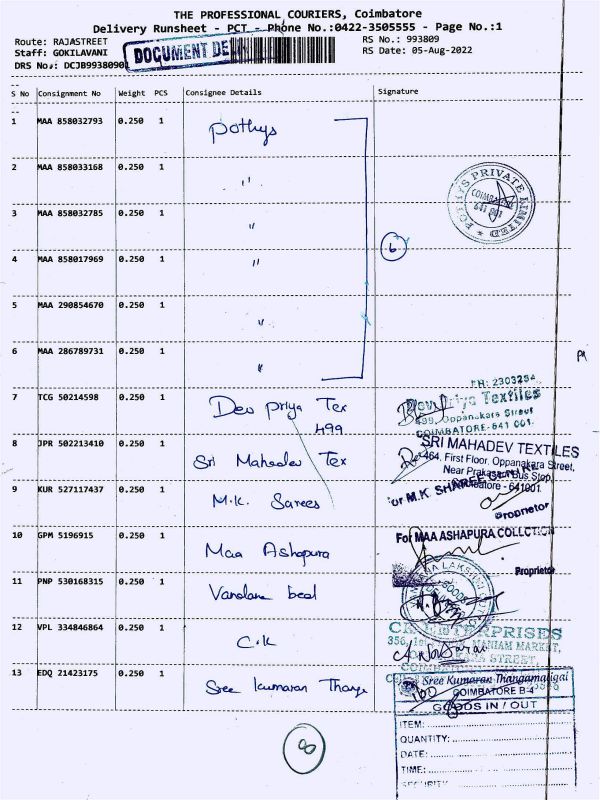 THE PROFESSIONAL COURIERS, Coimbatore
Delivery Runsheet - PCT - Phone No.:0422-3505555 - Page No.:1
Route: RAJASTREET
RS No.: 993809
Staff: GOKILAVANI
RS Date: 05-Aug-2022
DRS No.: DCJB9938090
DOCUMENT DE
S No Consignment No Weight PCS Consignee Details Signature
1 MAA 858032793 0.250 1 Pothys
2 MAA 858033168 0.250 1 "
3 MAA 858032785 0.250 1 "
4 MAA 858017969 0.250 1 "
5 MAA 290854670 0.250 1 "
6 MAA 286789731 0.250 1 "
6
POTHYS PRIVATE LIMITED
COIMBATORE
641 001
7 TCG 50214598 0.250 1 Dev priya Tex
499
PH: 2303254
Dev Priya Textiles
499, Oppanakara Street
COIMBATORE-641 001.
8 JPR 502213410 0.250 1 Sri Mahadev Tex
SRI MAHADEV TEXTILES
464, First Floor, Oppanakara Street,
Near Prakasam Bus Stop,
Coimbatore - 641001.
9 KUR 527117437 0.250 1 M.K. Sarees
For M.K. SHAREE
Proprietor
10 GPM 5196915 0.250 1 Maa Ashapura
For MAA ASHAPURA COLLCTION
Proprietor
11 PNP 530168315 0.250 1
12 VPL 334846864 0.250 1 C.K
C.K. ENTERPRISES
MANIAM MARKET,
STREET,
13 EDQ 21423175 0.250 1 Sree kumaran Thange
Sree Kumaran Thangamaligai
COIMBATORE B-4
GOODS IN / OUT
ITEM:
QUANTITY:
DATE:
TIME:
SECURITY
8